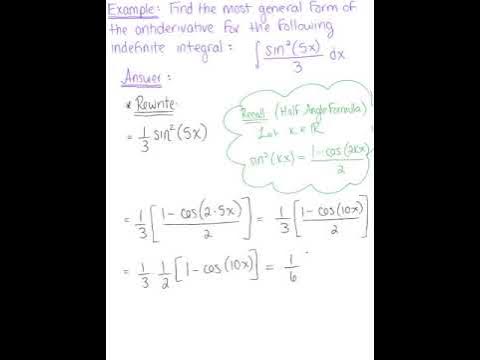 Example: Find the most general form of
the antiderivative for the following
indefinite integral: ∫ sin²(5x)/3 dx
Answer:
* Rewrite
Recall: (Half Angle Formula)
Let k ∈ ℝ
= 1/3 sin²(5x)
sin²(kx) = (1-cos(2kx))/2
= 1/3 [(1-cos(2·5x))/2] = 1/3 [(1-cos(10x))/2]
= 1/3 1/2 [1-cos(10x)] = 1/6